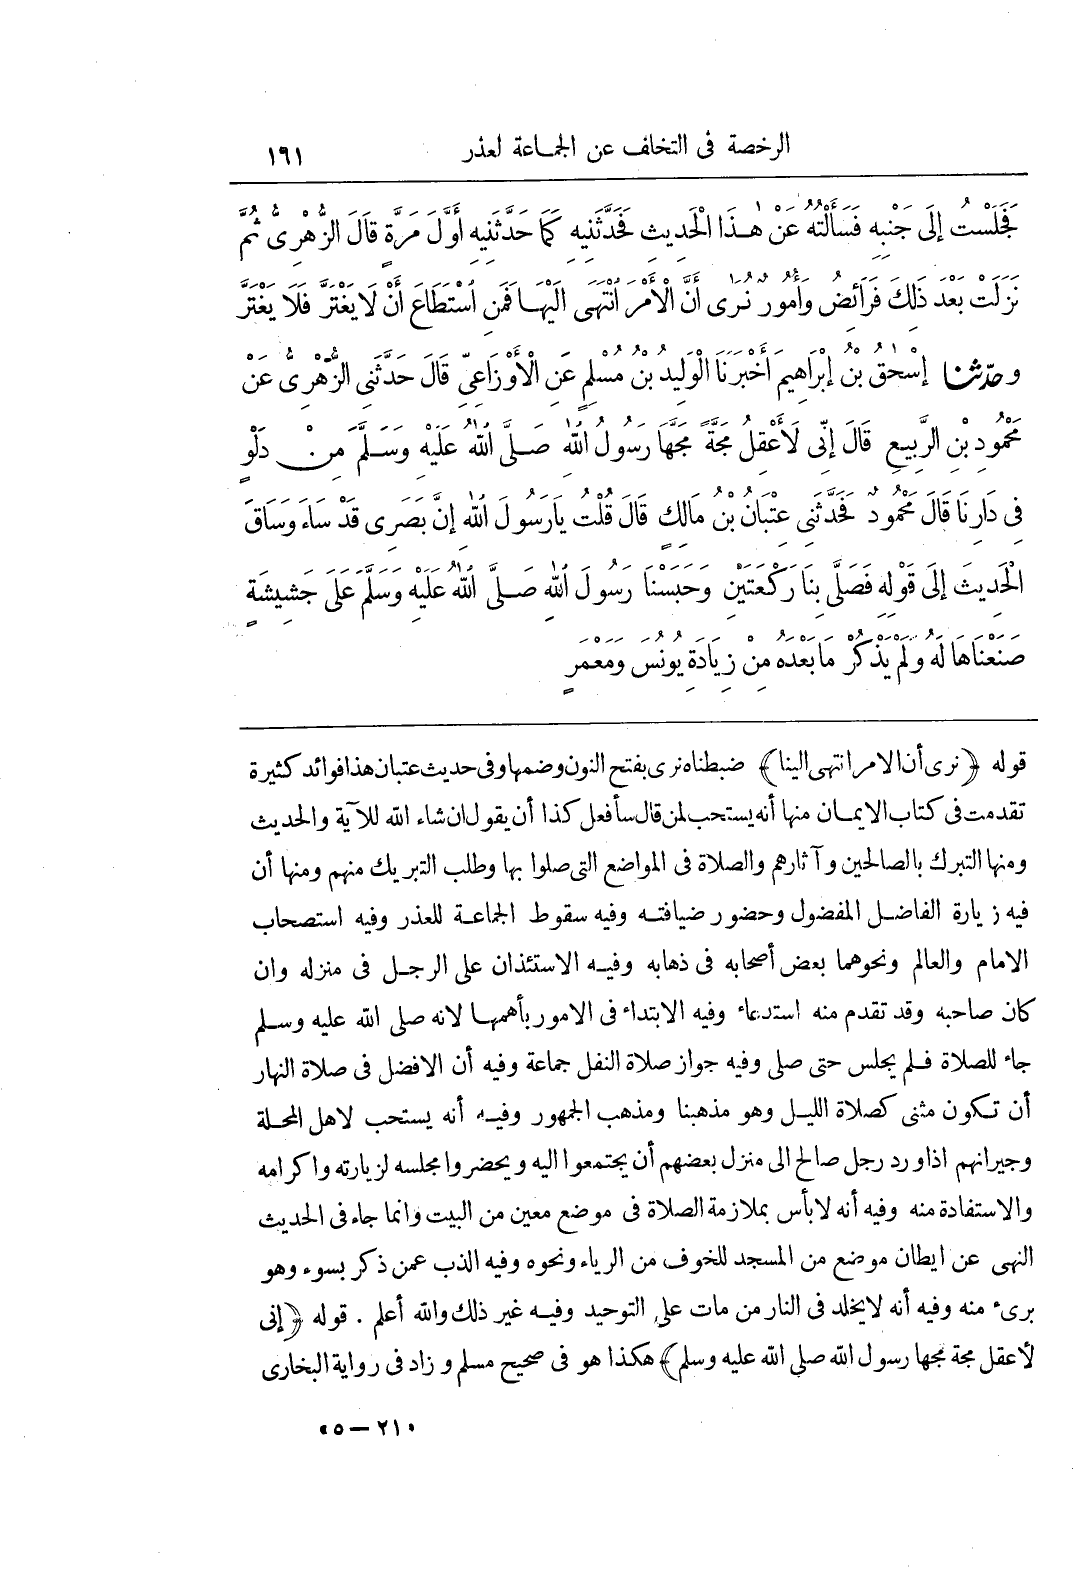 الرخصة فى التخلف عن الجماعة لعذر ١٦١
فَجَلَسْتُ إِلَى جَنْبِهِ فَسَأَلْتُهُ عَنْ هٰذَا الْحَدِيثِ فَحَدَّثَنِيهِ كَمَا حَدَّثَنِيهِ أَوَّلَ مَرَّةٍ قَالَ الزُّهْرِىُّ ثُمَّ
نَزَلَتْ بَعْدَ ذَلِكَ فَرَائِضُ وَأُمُورٌ نُرَى أَنَّ الْأَمْرَ انْتَهَى إِلَيْهَا فَمَنِ اسْتَطَاعَ أَنْ لَا يَغْتَرَّ فَلَا يَغْتَرَّ
و حدّثنا إِسْحٰقُ بْنُ إِبْرَاهِيمَ أَخْبَرَنَا الْوَلِيدُ بْنُ مُسْلِمٍ عَنِ الْأَوْزَاعِىِّ قَالَ حَدَّثَنِى الزُّهْرِىُّ عَنْ
مَحْمُودِ بْنِ الرَّبِيعِ قَالَ إِنِّى لَأَعْقِلُ مَجَّةً مَجَّهَا رَسُولُ اللّٰهِ صَلَّى اللّٰهُ عَلَيْهِ وَسَلَّمَ مِنْ دَلْوٍ
فِى دَارِنَا قَالَ مَحْمُودٌ فَحَدَّثَنِى عِتْبَانُ بْنُ مَالِكٍ قَالَ قُلْتُ يَارَسُولَ اللّٰهِ إِنَّ بَصَرِى قَدْ سَاءَ وَسَاقَ
الْحَدِيثَ إِلَى قَوْلِهِ فَصَلَّى بِنَا رَكْعَتَيْنِ وَحَبَسْنَا رَسُولَ اللّٰهِ صَلَّى اللّٰهُ عَلَيْهِ وَسَلَّمَ عَلَى جَشِيشَةٍ
صَنَعْنَاهَا لَهُ وَلَمْ يَذْكُرْ مَا بَعْدَهُ مِنْ زِيَادَةِ يُونُسَ وَمَعْمَرٍ
قوله ﴿نرى أن الامر انتهى الينا﴾ ضبطناه نرى بفتح النون وضمها وفى حديث عتبان هذا فوائد كثيرة
تقدمت فى كتاب الايمان منها أنه يستحب لمن قال سأفعل كذا أن يقول ان شاء الله للآية والحديث
ومنها التبرك بالصالحين وآثارهم والصلاة فى المواضع التى صلوا بها وطلب التبريك منهم ومنها أن
فيه زيارة الفاضل المفضول وحضور ضيافته وفيه سقوط الجماعة للعذر وفيه استصحاب
الامام والعالم ونحوهما بعض أصحابه فى ذهابه وفيه الاستئذان على الرجل فى منزله وان
كان صاحبه وقد تقدم منه استدعاء وفيه الابتداء فى الامور بأهمها لانه صلى الله عليه وسلم
جاء للصلاة فلم يجلس حتى صلى وفيه جواز صلاة النفل جماعة وفيه أن الافضل فى صلاة النهار
أن تكون مثنى كصلاة الليل وهو مذهبنا ومذهب الجمهور وفيه أنه يستحب لاهل المحلة
وجيرانهم اذا ورد رجل صالح الى منزل بعضهم أن يجتمعوا اليه ويحضروا مجلسه لزيارته واكرامه
والاستفادة منه وفيه أنه لا بأس بملازمة الصلاة فى موضع معين من البيت وانما جاء فى الحديث
النهى عن ايطان موضع من المسجد للخوف من الرياء ونحوه وفيه الذب عمن ذكر بسوء وهو
برىء منه وفيه أنه لا يخلد فى النار من مات على التوحيد وفيه غير ذلك والله أعلم . قوله ﴿إنى
لأعقل مجة مجها رسول الله صلى الله عليه وسلم﴾ هكذا هو فى صحيح مسلم وزاد فى رواية البخارى
«٢١ — ٥»